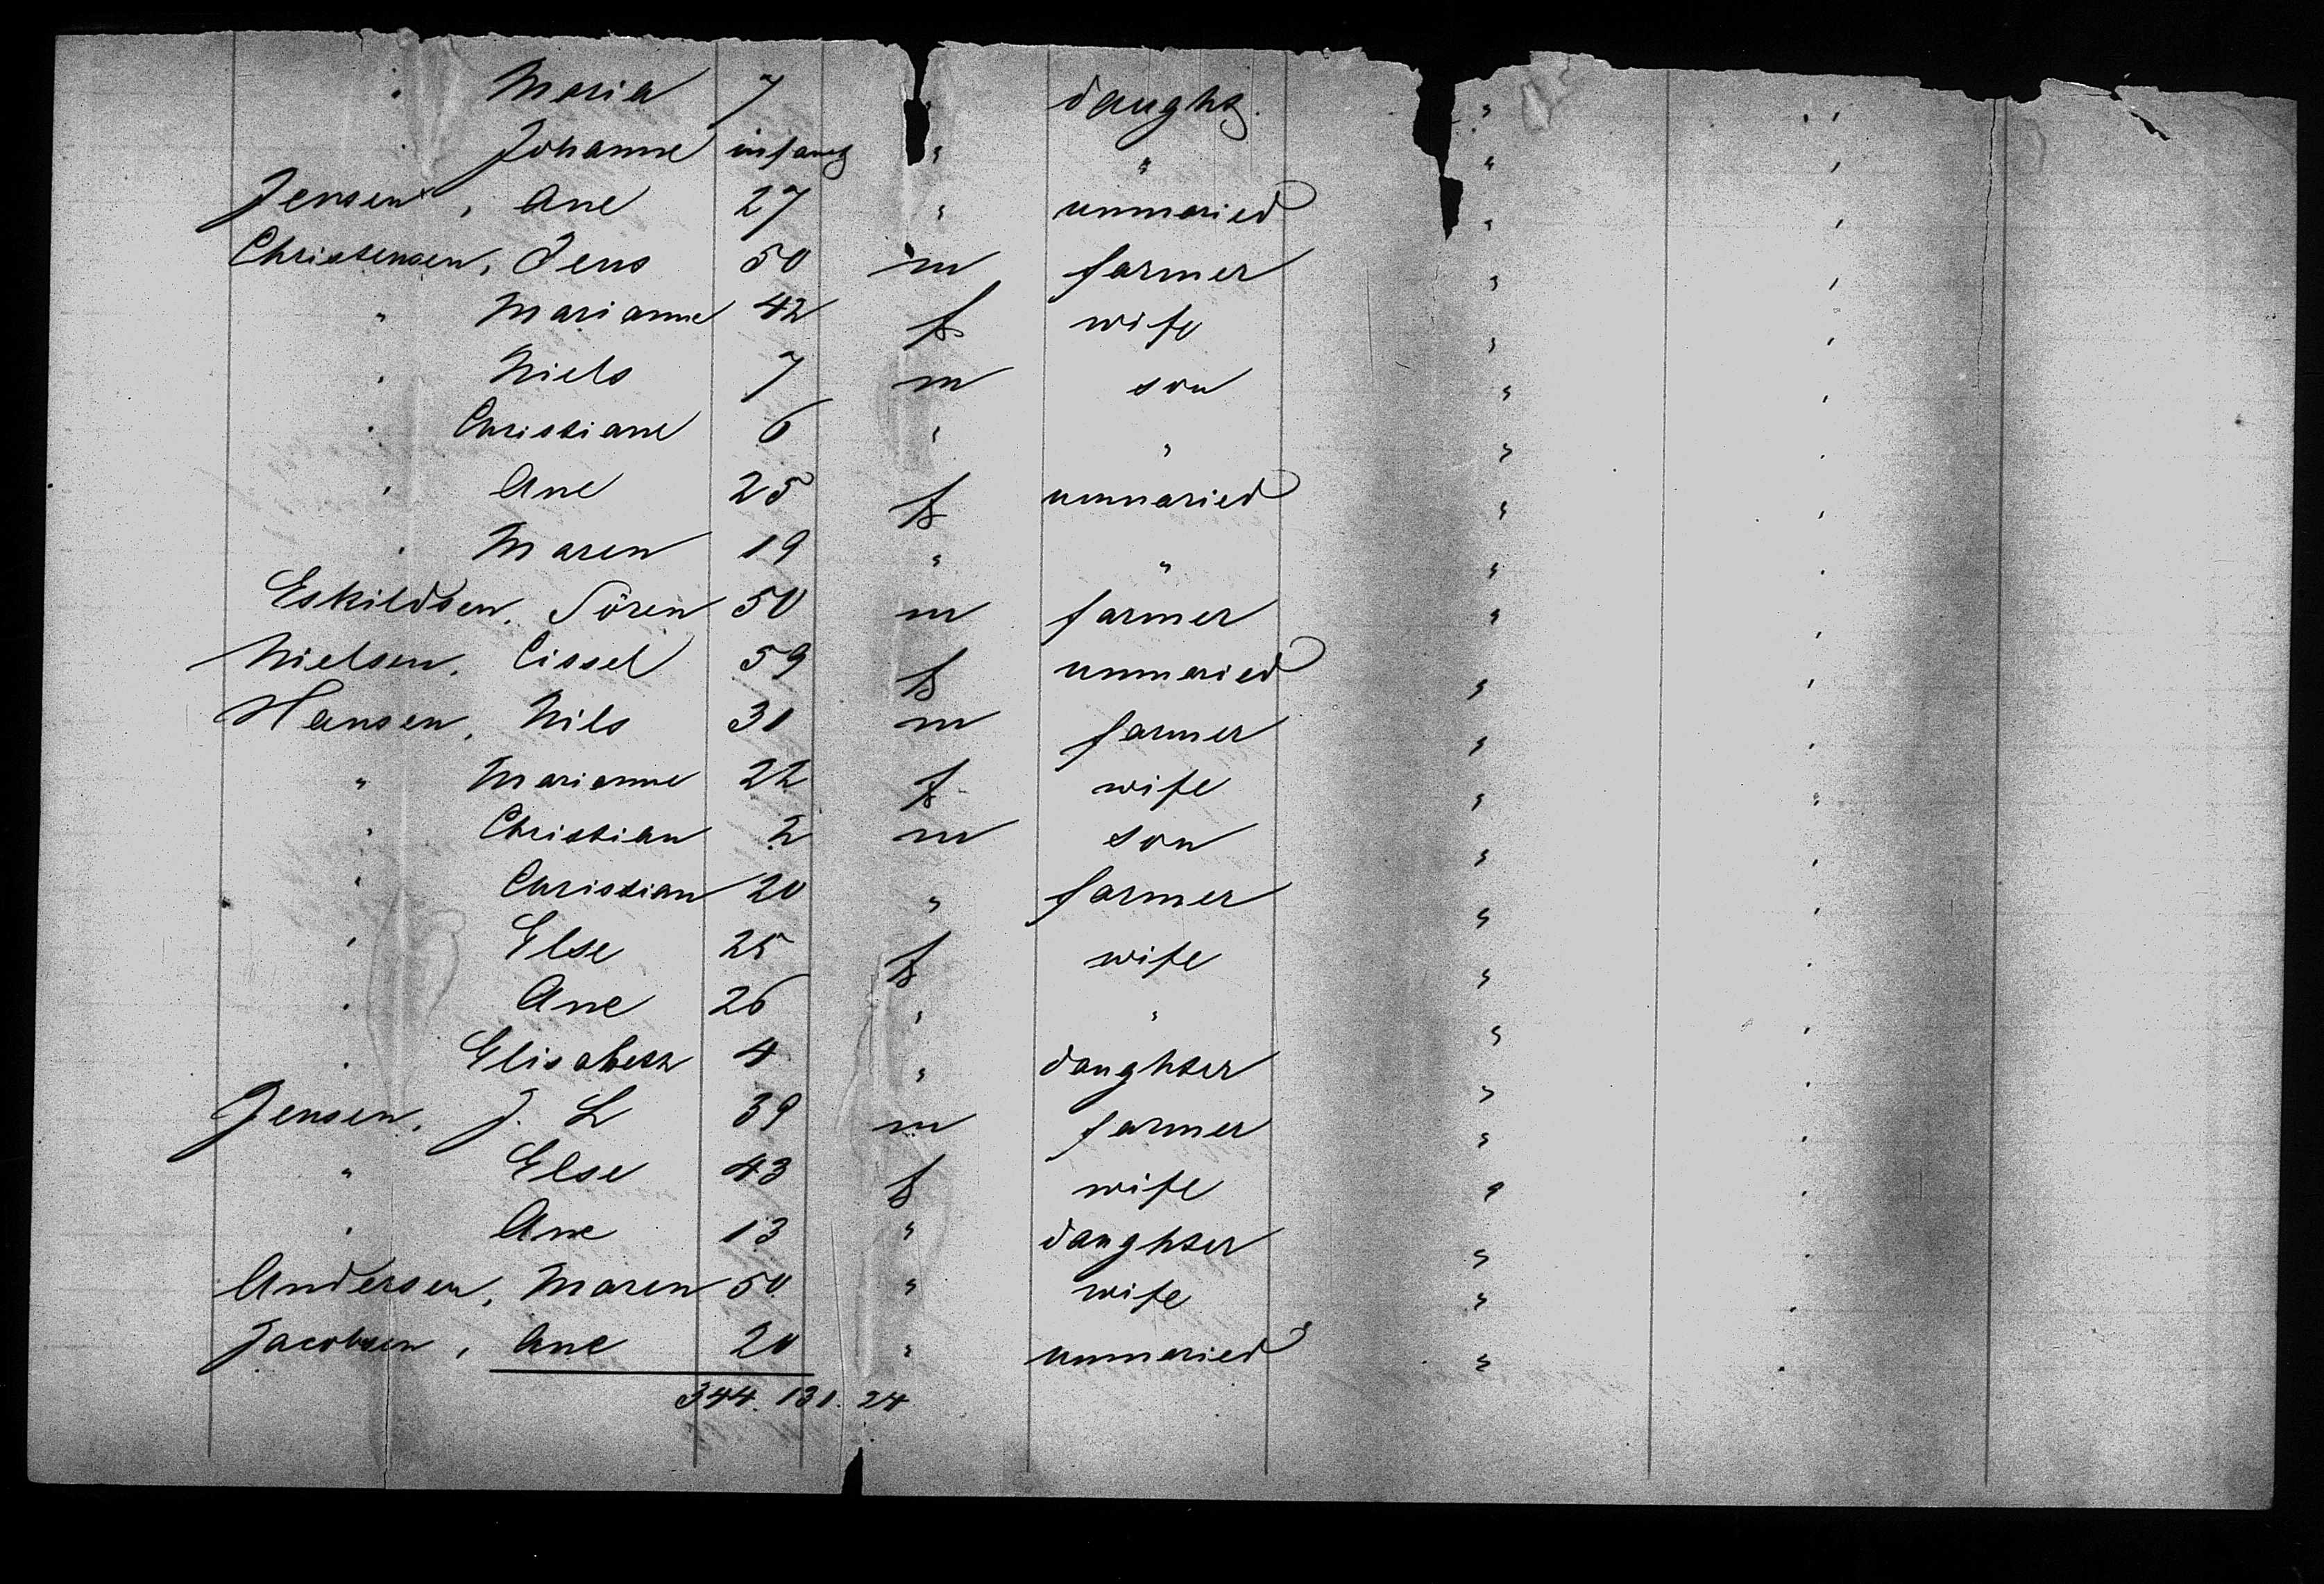 " Maria 7 " daught. " "
" Johanne infant " " " "
Jensen, Ane 27 " unmaried " "
Christensen, Jens 50 m farmer " "
" Marianne 42 f wife " "
" Niels 7 m son " "
" Christiane 6 " " " "
" Ane 25 f unmaried " "
" Maren 19 " " " "
Eskildsen, Sören 50 m farmer " "
Nielsen, Cissel 59 f unmaried " "
Hansen, Nils 31 m farmer " "
" Marianne 22 f wife " "
" Christian 2 m son " "
" Christian 20 " farmer " "
" Else 25 f wife " "
" Ane 26 " " " "
" Elisabeth 4 " daughter " "
Jensen, J. L 39 m farmer " "
" Else 43 f wife " "
" Ane 13 " daughter " "
Andersen, Maren 50 " wife " "
Jacobsen, Ane 20 " unmaried " "
344. 131. 24